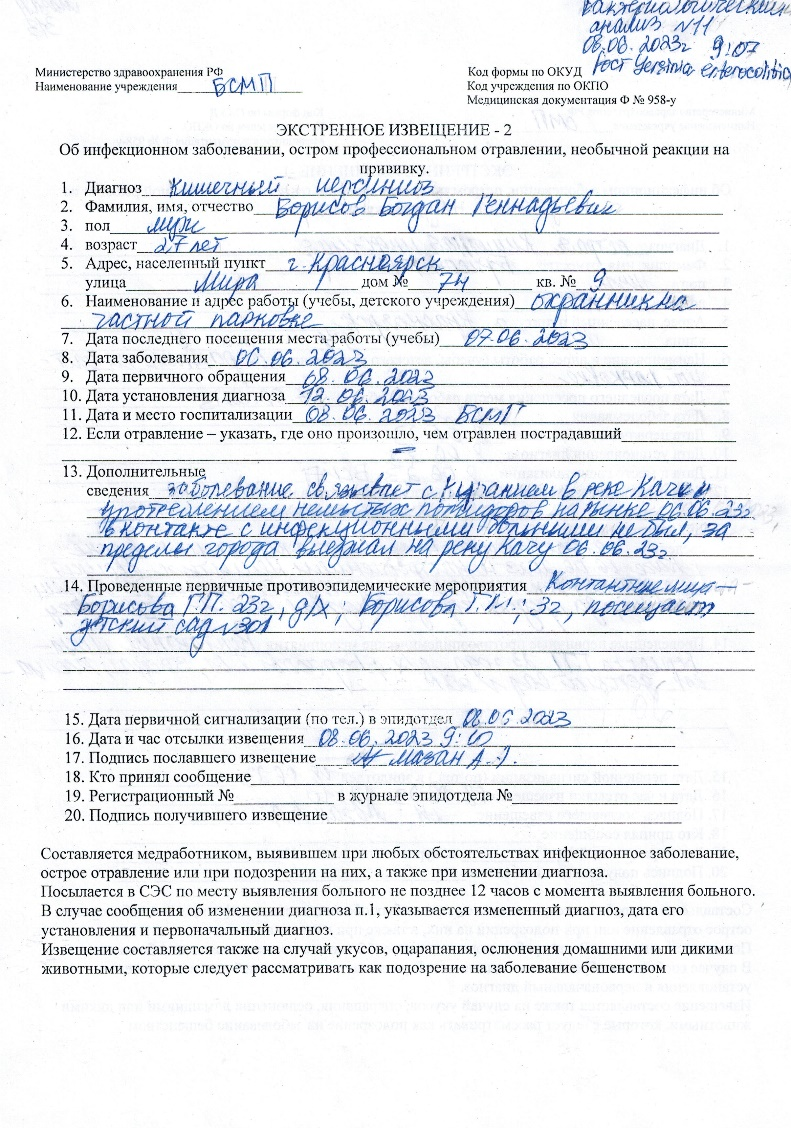 бактериологический
анализ №11
08.06.2023г 9:07
Рост Yersinia enterocolitica
Министерство здравоохранения РФ
Наименование учреждения БСМП
Код формы по ОКУД
Код учреждения по ОКПО
Медицинская документация Ф № 958-у
ЭКСТРЕННОЕ ИЗВЕЩЕНИЕ - 2
Об инфекционном заболевании, остром профессиональном отравлении, необычной реакции на
прививку.
1. Диагноз Кишечный иерсиниоз
2. Фамилия, имя, отчество Борисов Богдан Геннадьевич
3. пол муж
4. возраст 27 лет
5. Адрес, населенный пункт г. Красноярск
улица Мира дом № 74 кв. № 9
6. Наименование и адрес работы (учебы, детского учреждения) охранник на
частной парковке
7. Дата последнего посещения места работы (учебы) 07.06.2023
8. Дата заболевания 06.06.2023
9. Дата первичного обращения 08.06.2023
10. Дата установления диагноза 12.06.2023
11. Дата и место госпитализации 08.06.2023 БСМП
12. Если отравление – указать, где оно произошло, чем отравлен пострадавший
–
13. Дополнительные
сведения заболевание связывает с купанием в реке Кача и
употреблением немытых помидоров на рынке 06.06.23г
в контакте с инфекционными больными не был, за
пределы города выезжал на реку Качу 06.06.23г.
14. Проведенные первичные противоэпидемические мероприятия Контактные лица –
Борисова Г.П. 23г, д/х; Борисова Г.М.; 3г, посещает
детский сад №301
15. Дата первичной сигнализации (по тел.) в эпидотдел 08.06.2023
16. Дата и час отсылки извещения 08.06.2023 9:10
17. Подпись пославшего извещение Мазан А.Э.
18. Кто принял сообщение
19. Регистрационный № в журнале эпидотдела №
20. Подпись получившего извещение
Составляется медработником, выявившем при любых обстоятельствах инфекционное заболевание,
острое отравление или при подозрении на них, а также при изменении диагноза.
Посылается в СЭС по месту выявления больного не позднее 12 часов с момента выявления больного.
В случае сообщения об изменении диагноза п.1, указывается измененный диагноз, дата его
установления и первоначальный диагноз.
Извещение составляется также на случай укусов, оцарапания, ослюнения домашними или дикими
животными, которые следует рассматривать как подозрение на заболевание бешенством